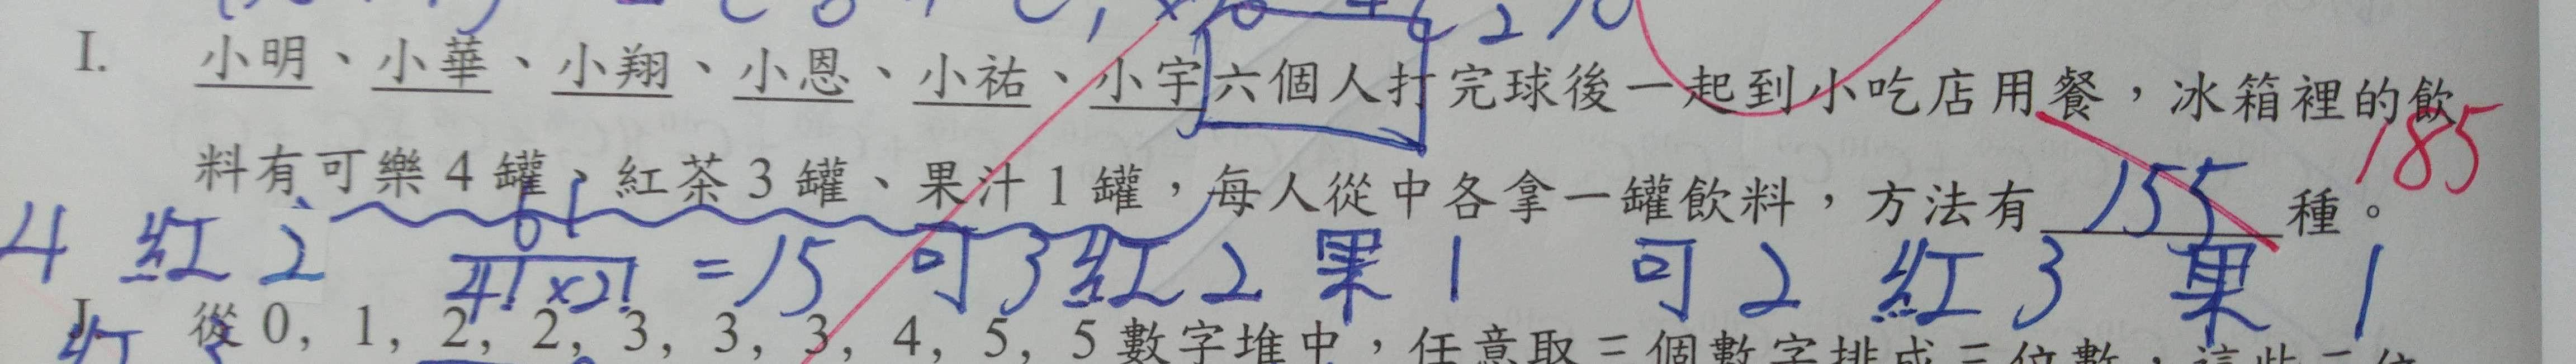 I. 小明、小華、小翔、小恩、小祐、小宇六個人打完球後一起到小吃店用餐,冰箱裡的飲
料有可樂4罐、紅茶3罐、果汁1罐,每人從中各拿一罐飲料,方法有 155 種。 185
4 紅 2 6!/(4!×2!) = 15 可3紅2果1 可2紅3果1
J. 從0, 1, 2, 2, 3, 3, 3, 4, 5, 5數字堆中,任意取三個數字排成三位數,這些三位